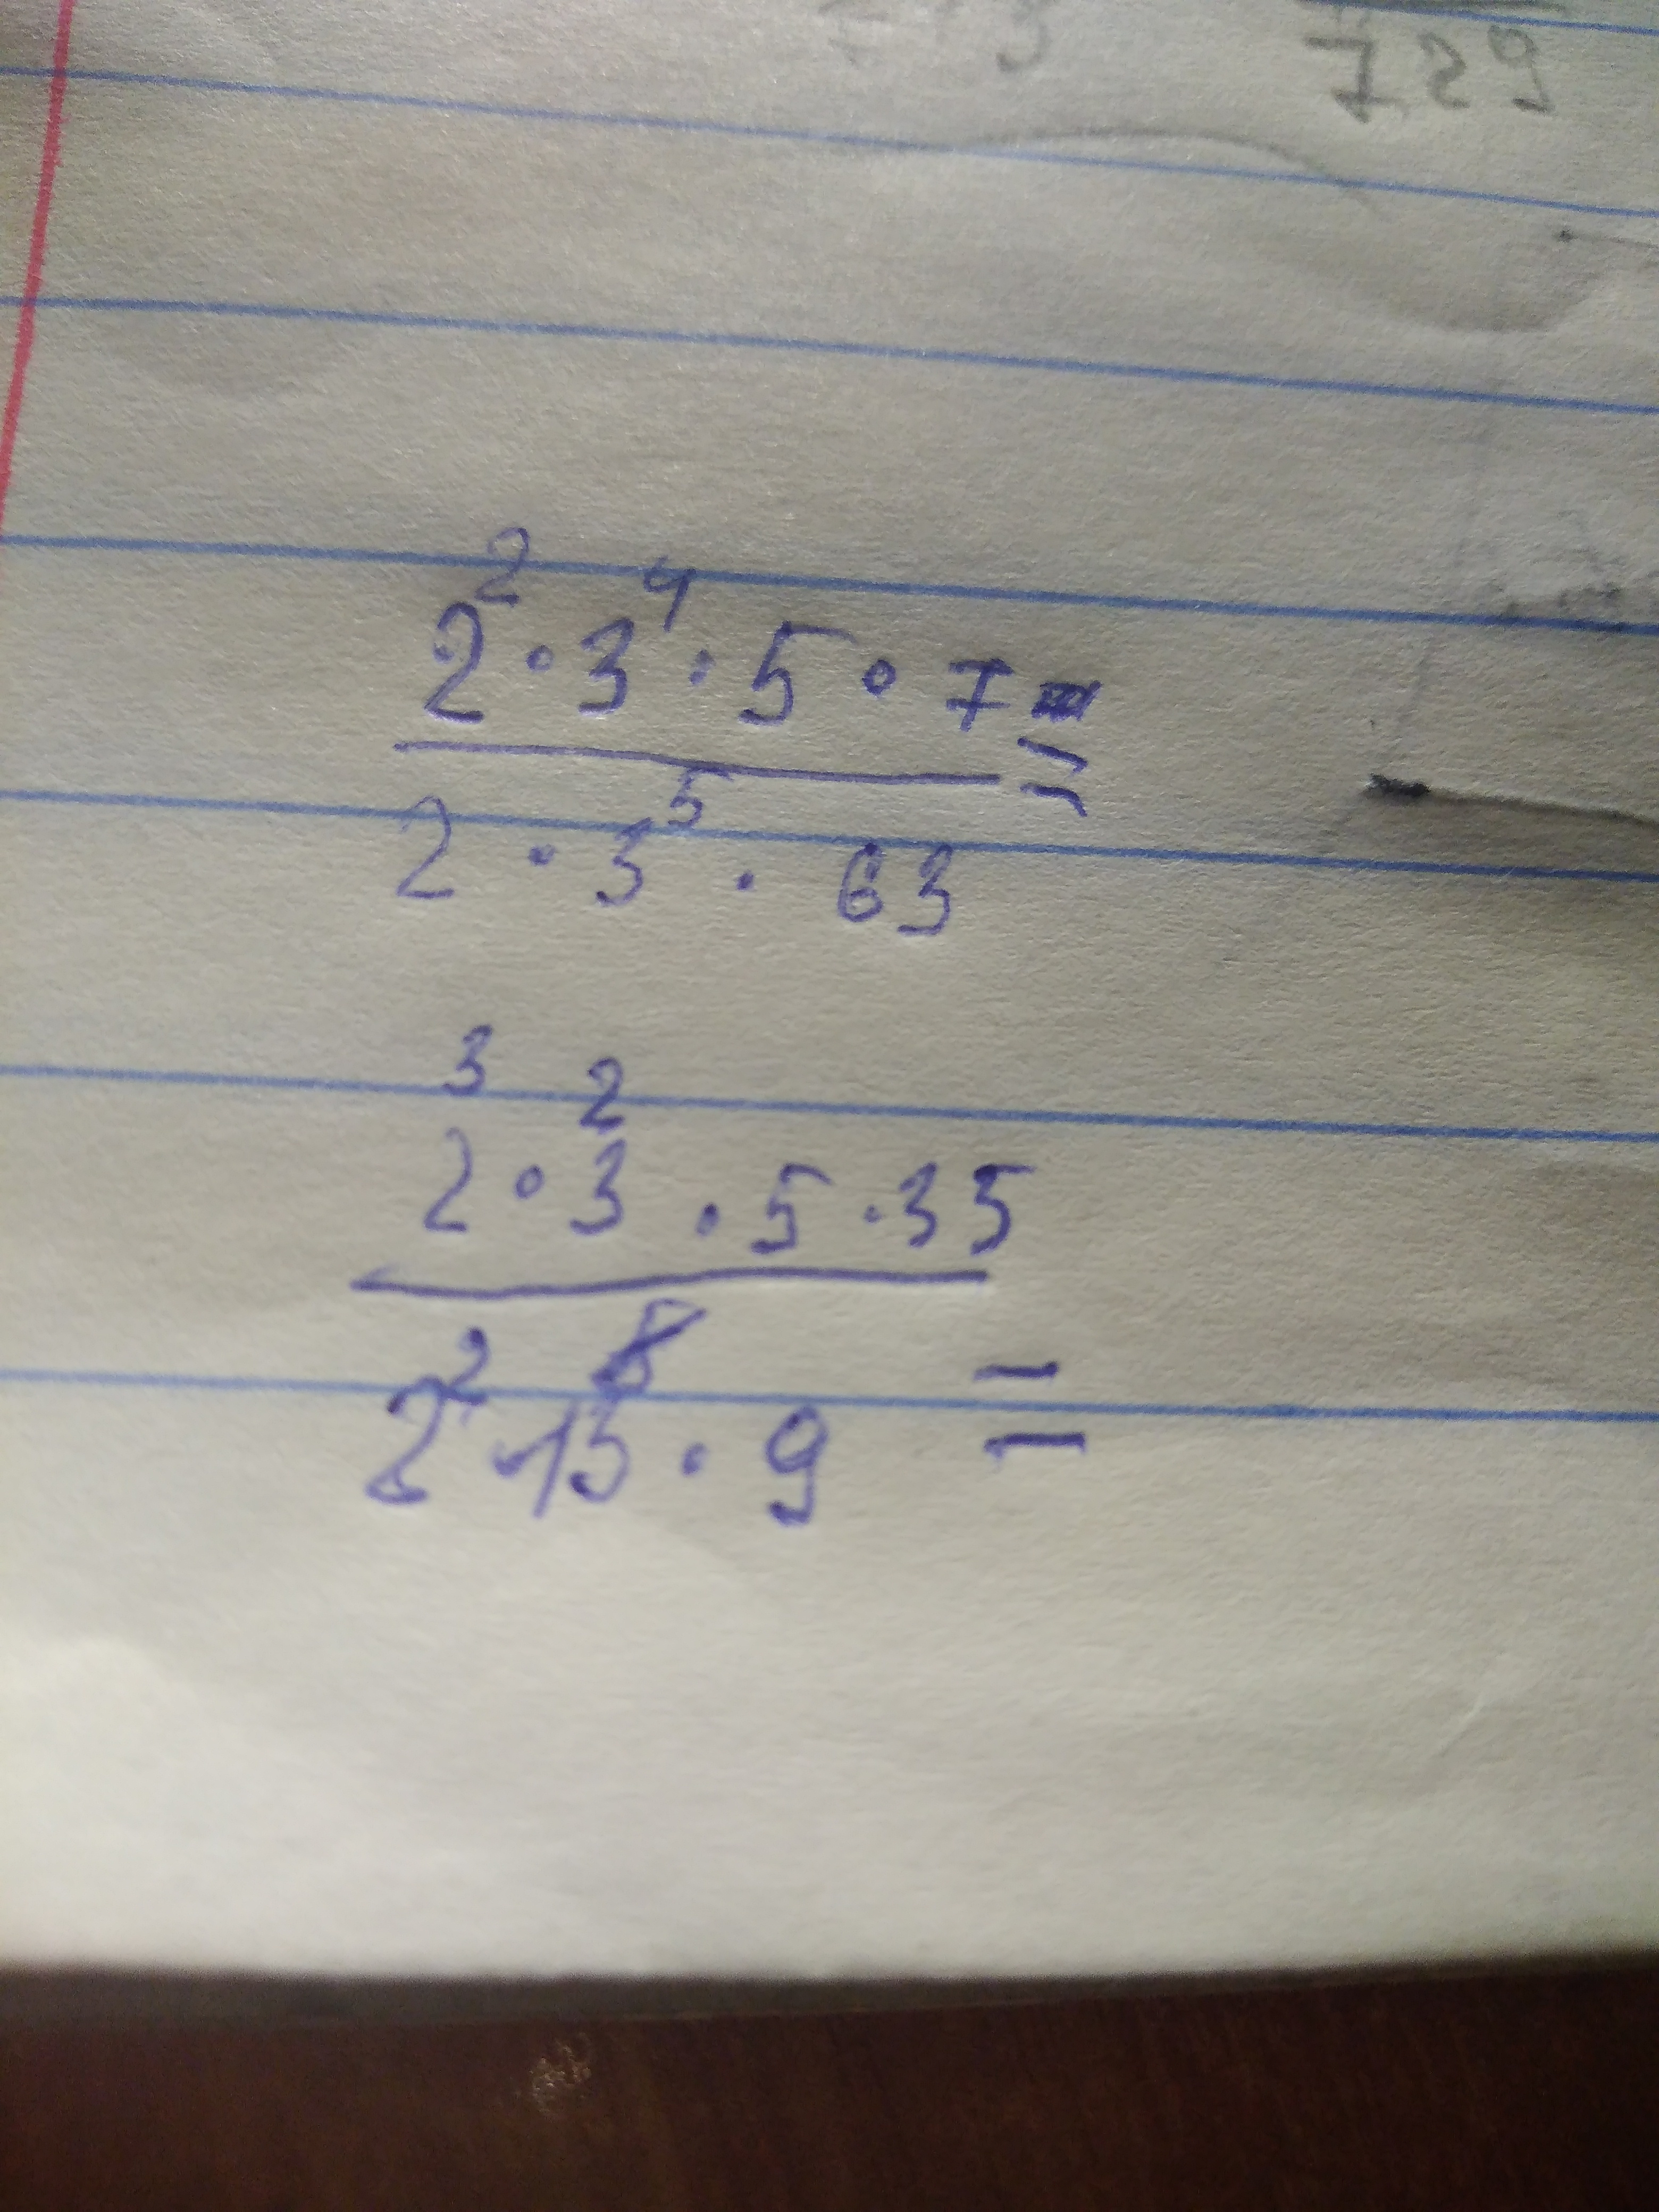 729
2² · 3⁴ · 5 · 7 =
2 · 3⁵ · 63
2³ · 3² · 5 · 35
2² · 15 · 9 =